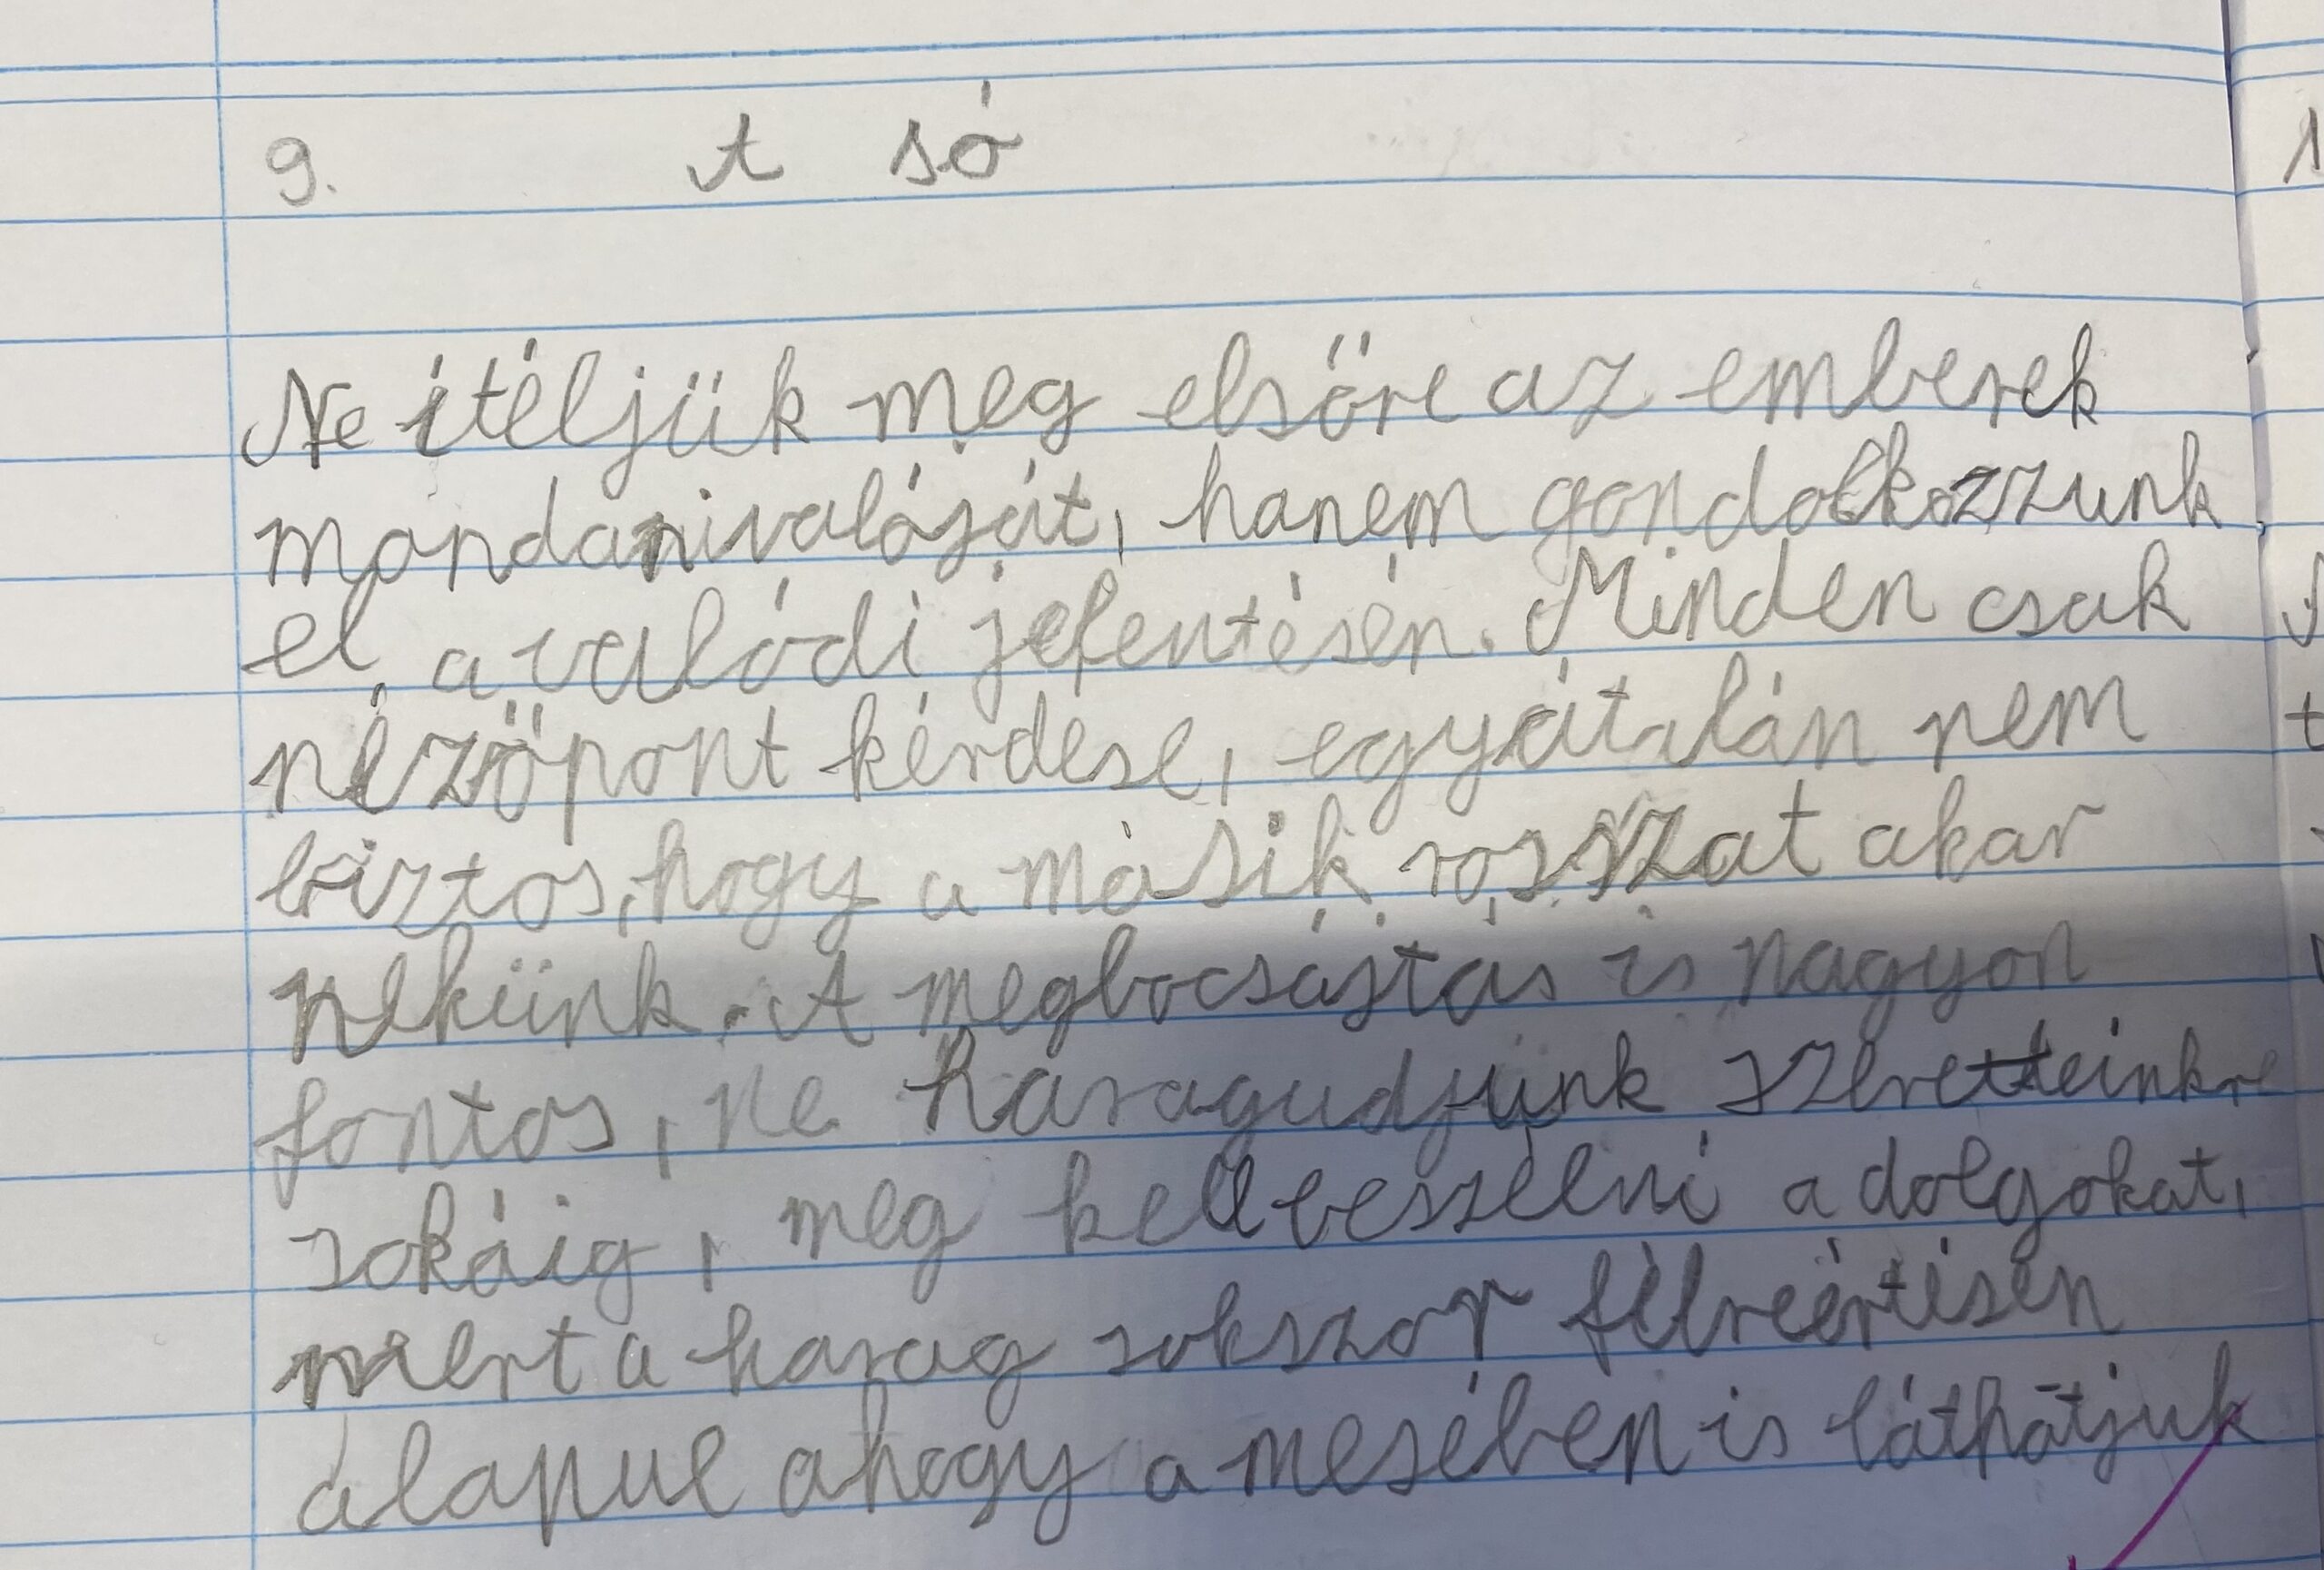 9. A só
Ne ítéljük meg elsőre az emberek
mondanivalóját, hanem gondolkozzunk
el, a valódi jelentésén. Minden csak
nézőpont kérdése, egyátalán nem
biztos, hogy a másik rosszat akar
nekünk. A megbocsájtás is nagyon
fontos, ne haragudjunk szeretteinkre
sokáig, meg kell beszélni a dolgokat,
mert a harag sokszor félreértésen
alapul ahogy a mesében is láthatjuk